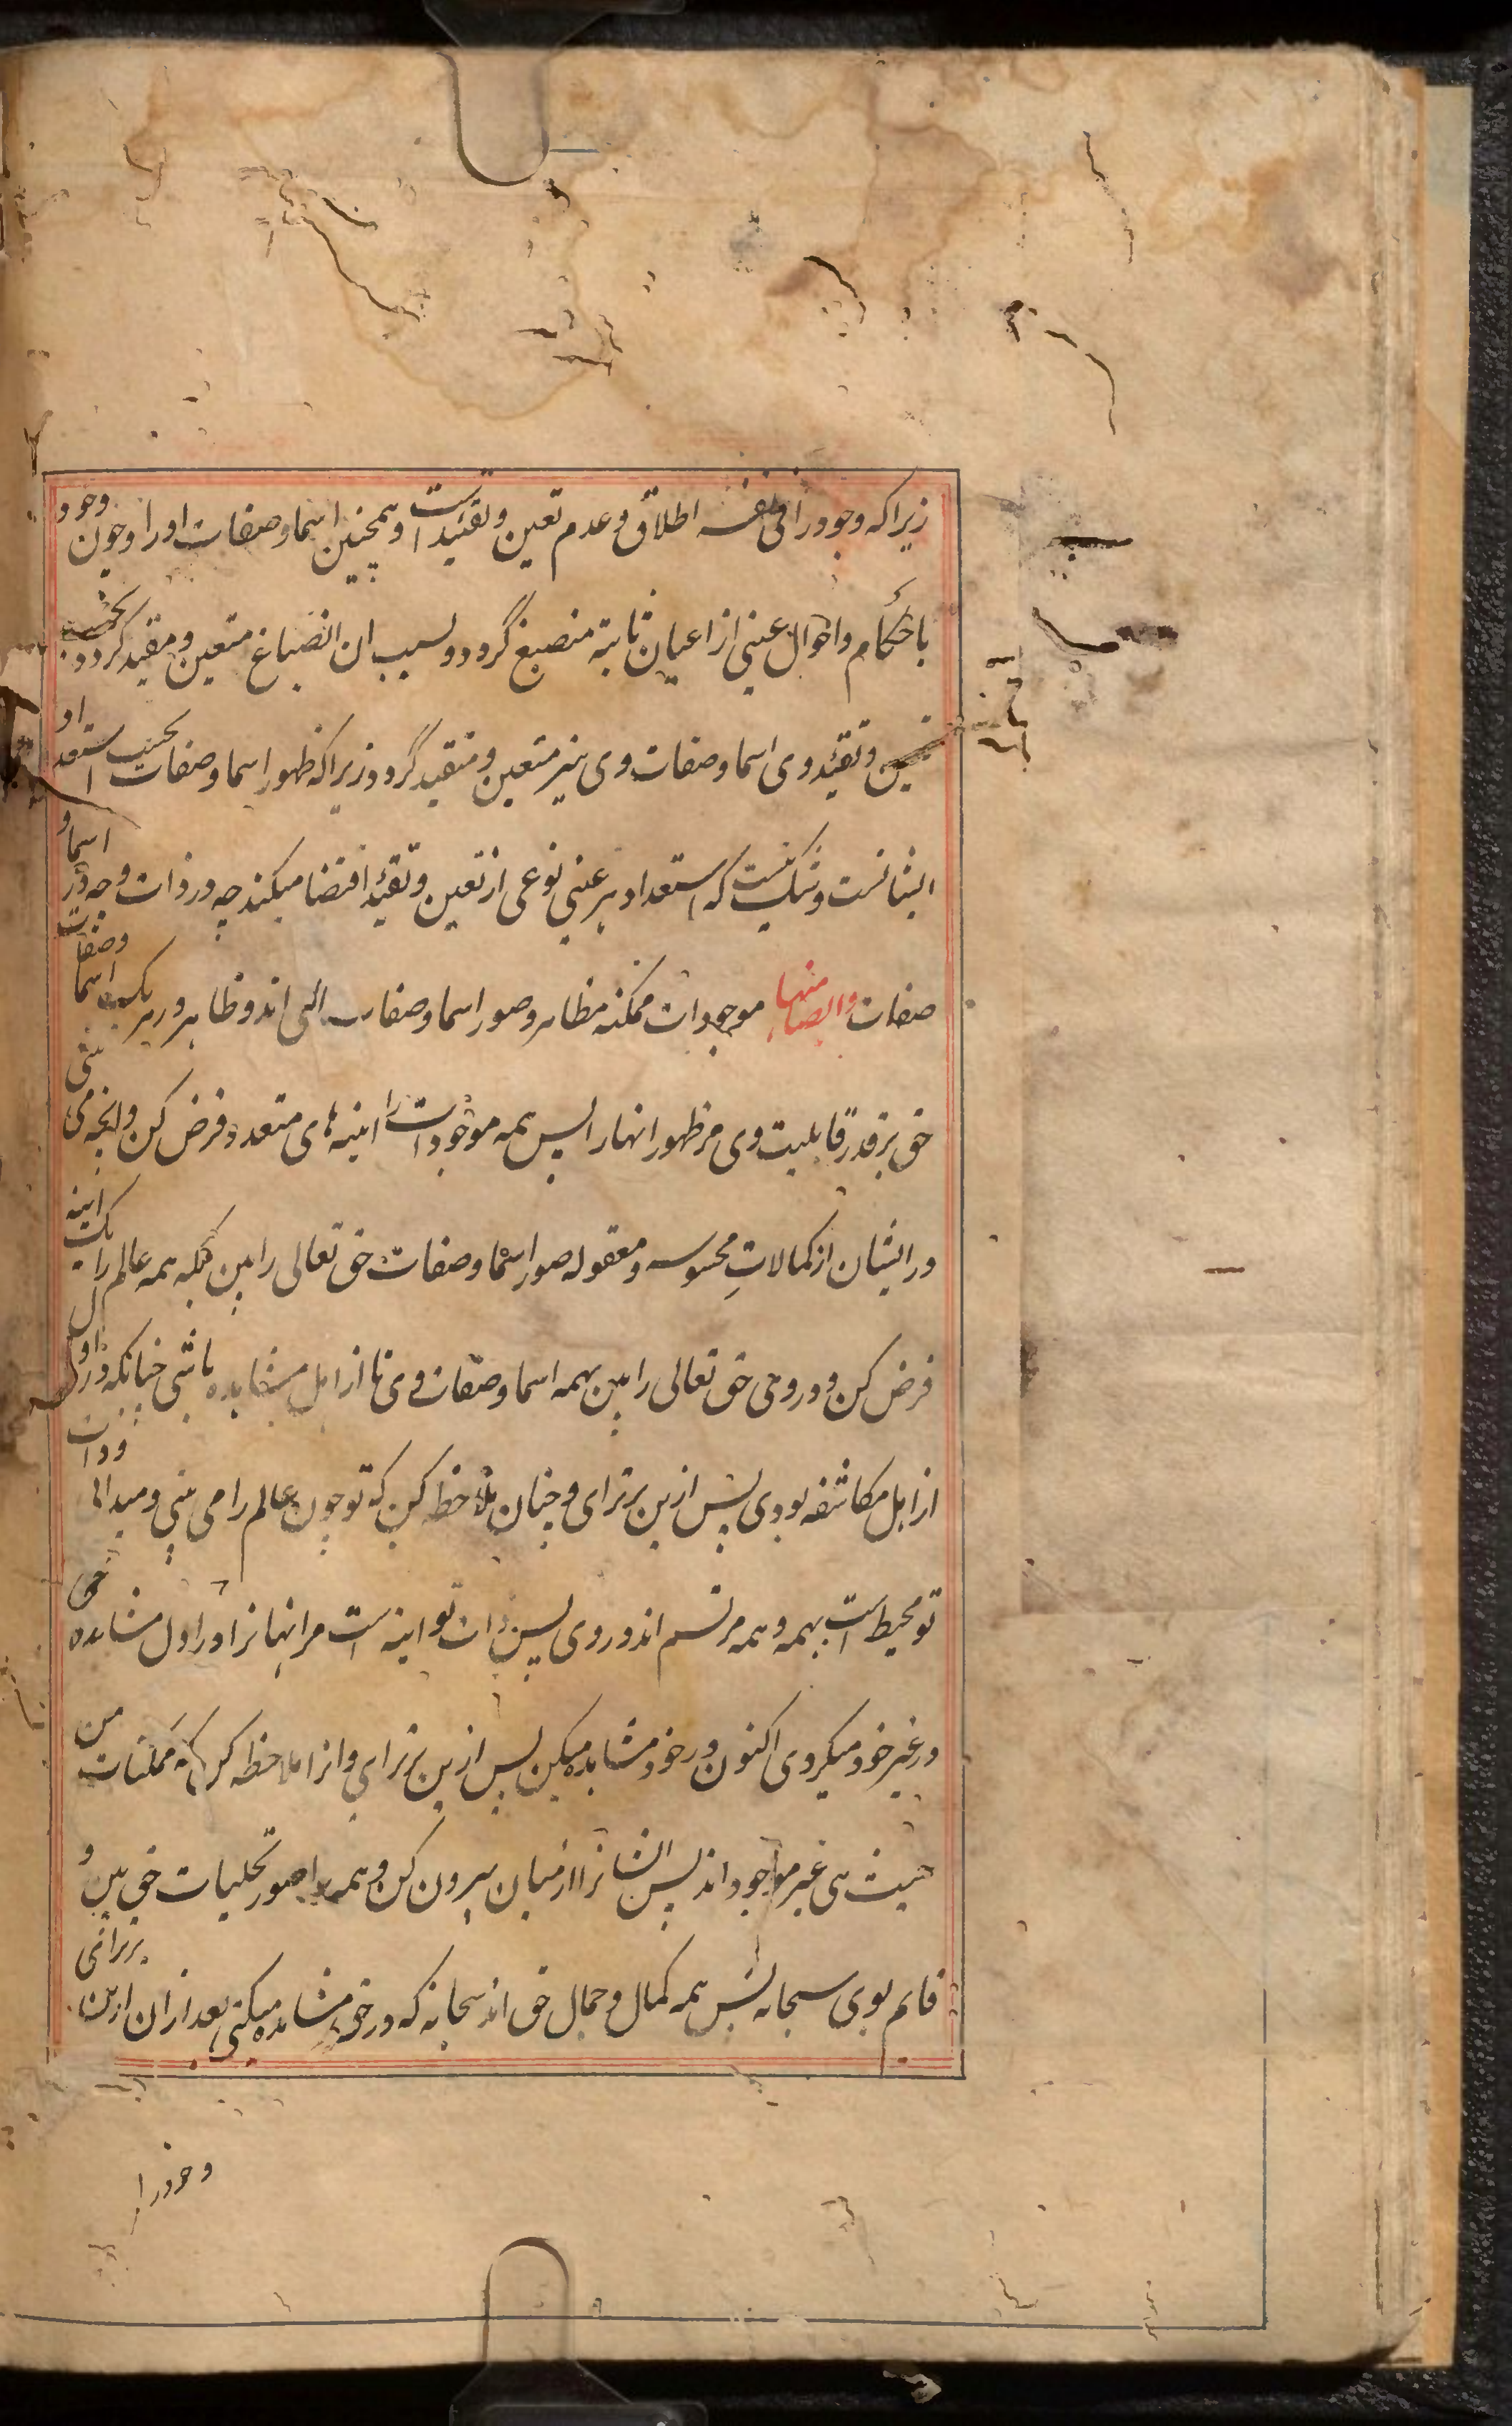 زیراکه وجود را فی نفسه اطلاق و عدم تعین و تقید است و همچنین اسما و صفات او را و چون وجود
باحکام و احوال عینی از اعیان ثابته منصبغ گردد و بسبب ان انصباغ متعین و مقید گردد بحسب
تعین و تقید وی اسما و صفات وی نیز متعین و متقید گردد زیراکه ظهور اسما و صفات بحسب استعداد
ایشانست و شک نیست که استعداد هر عینی نوعی از تعین و تقید اقتضا میکند چه در ذات و چه در اسما و
صفات و ایضا منها موجودات ممکنه مظاهر و صور اسما و صفات الهی اند و ظاهر در هر یک اسما و صفات
حق بر قدر قابلیت وی مر ظهور انها را پس همه موجودات را اینه های متعدد فرض کن و انچه می بینی
در ایشان از کمالات محسوسه و معقوله صور اسما و صفات حق تعالی را بین بلکه همه عالم را یک اینه
فرض کن و در وی حق تعالی را بین بهمه اسما و صفات وی تا از اهل مشاهده باشی چنانکه در اول
از اهل مکاشفه بودی پس ازین برتر ای و چنان ملاحظه کن که تو چون عالم را می بینی و میدانی و ذات
تو محیط است بهمه و همه مرتسم اند در وی پس ذات تو اینه است مر انها را و در اول مشاهده حق
در غیر خود میکردی اکنون در خود مشاهده میکن پس ازین برتر ای و انرا ملاحظه کن که ممکنات من
حیث هی غیر موجود اند پس ایشانرا از میان بیرون کن و همه را صور تجلیات حق بین و
قایم بوی سبحانه پس همه کمال و جمال حق اند سبحانه که در حق مشاهده میکنی بعد از ان ازین برتر ائی
و خود را